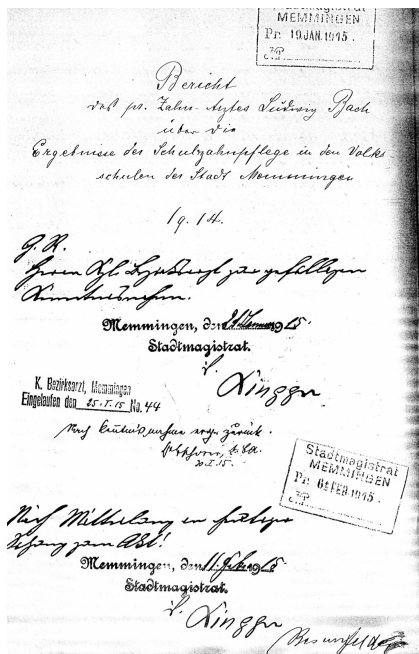 Stadtmagistrat
MEMMINGEN
Pr. 19 JAN. 1915.
Bericht
des pr. Zahn-Arztes Ludwig Bach
über die
Ergebnisse der Schulzahnpflege in den Volks-
schulen der Stadt Memmingen
1914.
G. R.
Herrn Kgl. Bezirksarzt zur gefälligen
Kenntnisnahme.
Memmingen, den 1915.
Stadtmagistrat.
Lingg
K. Bezirksarzt, Memmingen
Eingelaufen den 25.I.15 No. 44
Nach Kenntnisnahme ergebn. zurück.
Stadtmagistrat
MEMMINGEN
Pr. FEB 1915.
Nach Mitteilung in
zum Akt!
Memmingen, den 11. Feb. 1915
Stadtmagistrat.
Lingg